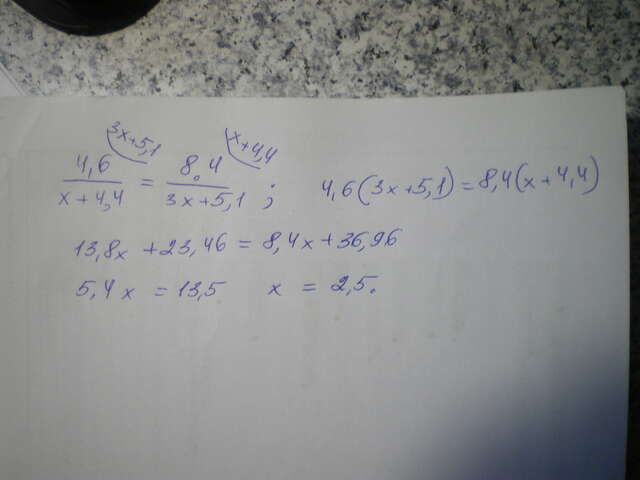 3x+5,1 x+4,4
4,6/(x+4,4) = 8.4/(3x+5,1) ; 4,6(3x+5,1)=8,4(x+4,4)
13,8x+23,46=8,4x+36,96
5,4x=13,5 x=2,5.